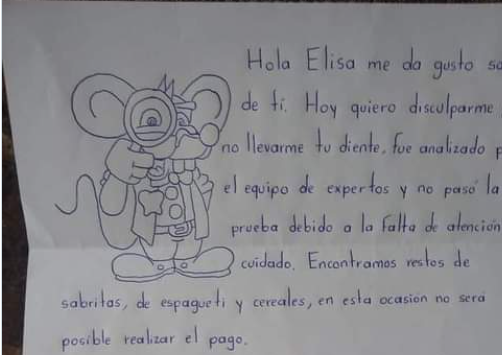 Hola Elisa me da gusto
de ti. Hoy quiero disculparme
no llevarme tu diente, fue analizado
el equipo de expertos y no pasó la
prueba debido a la falta de atención
cuidado. Encontramos restos de
sabritas, de espagueti y cereales, en esta ocasión no será
posible realizar el pago.